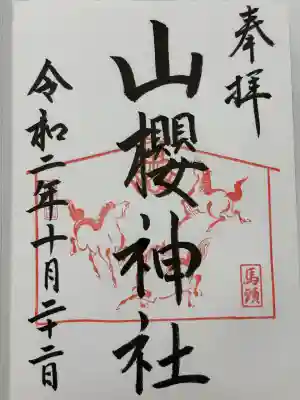 奉拝
山櫻神社
令和二年十月二十二日
馬頭